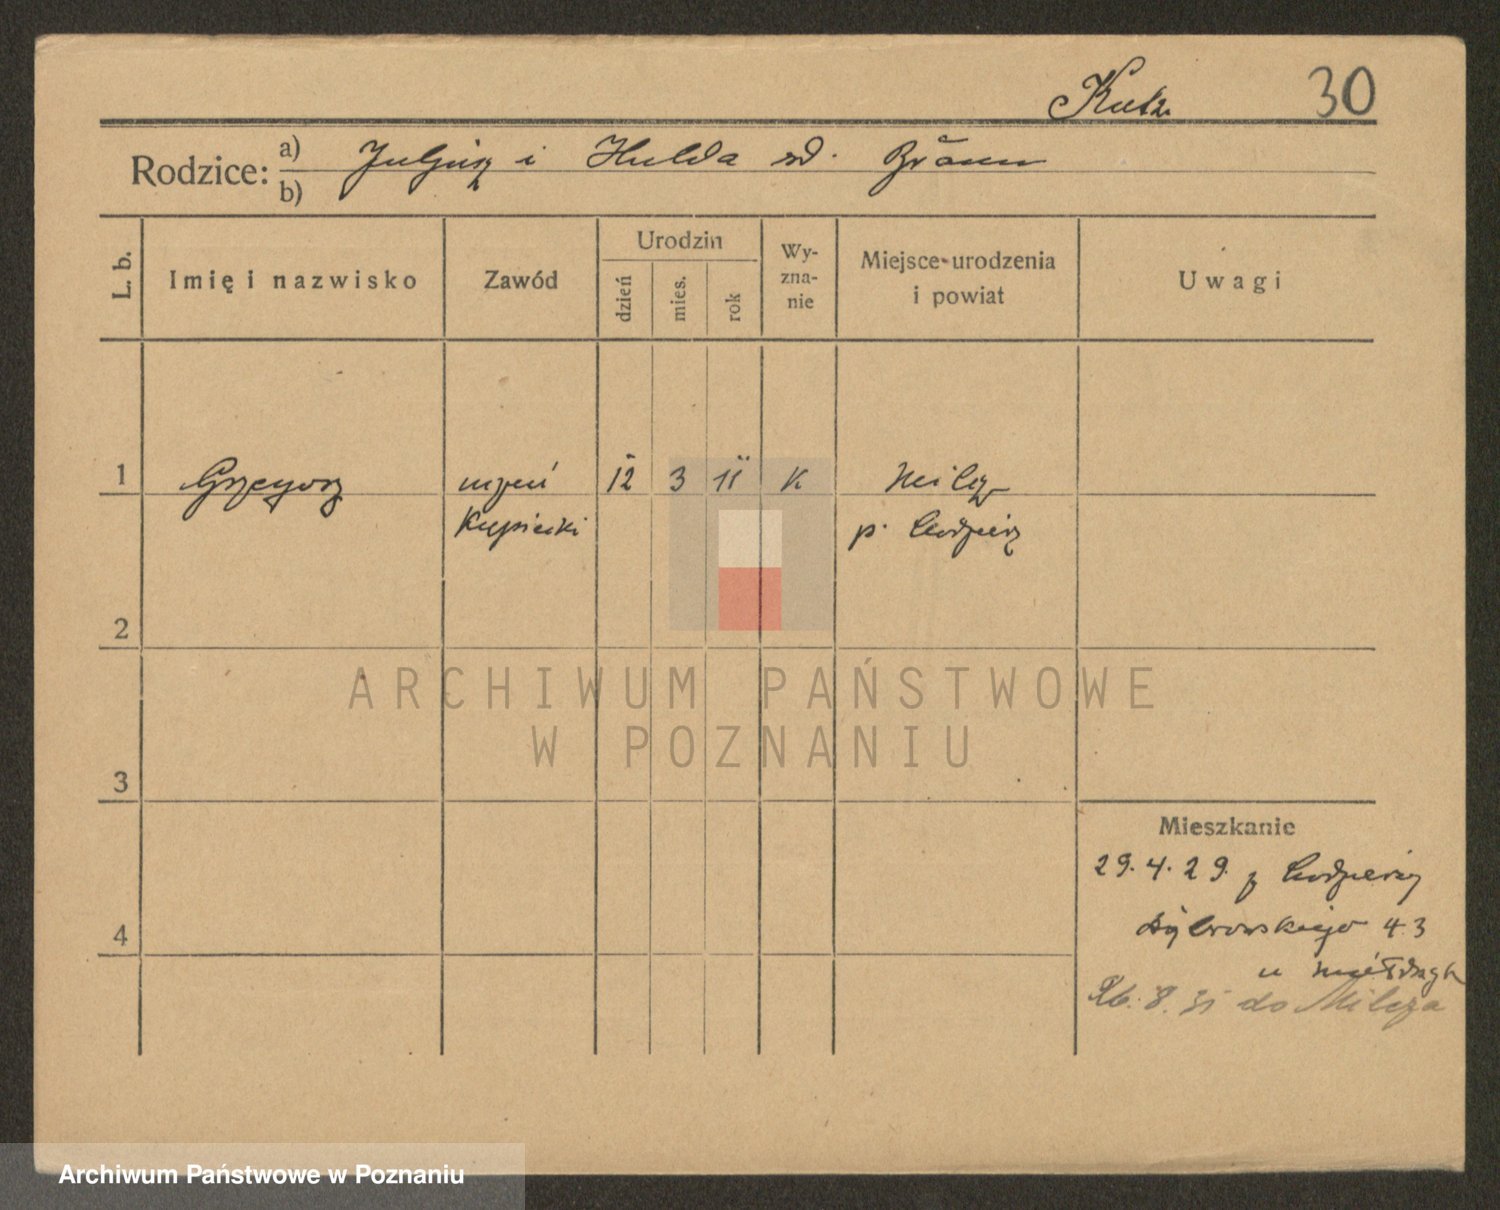 Kutz 30
Rodzice: a) Juljusz i Hulda zd. Bräun
b)
L. b. Imię i nazwisko Zawód Urodzin dzień mies. rok Wy-zna-nie Miejsce urodzenia i powiat Uwagi
1 Grzegorz uczeń 12 3 11 K Milcz
Kupiecki p. Chodzież
2
ARCHIWUM PAŃSTWOWE
W POZNANIU
3
Mieszkanie
29.4.29 z Chodzieży
4 Dąbrowskiego 43
u
8. 31 do Milcza
Archiwum Państwowe w Poznaniu